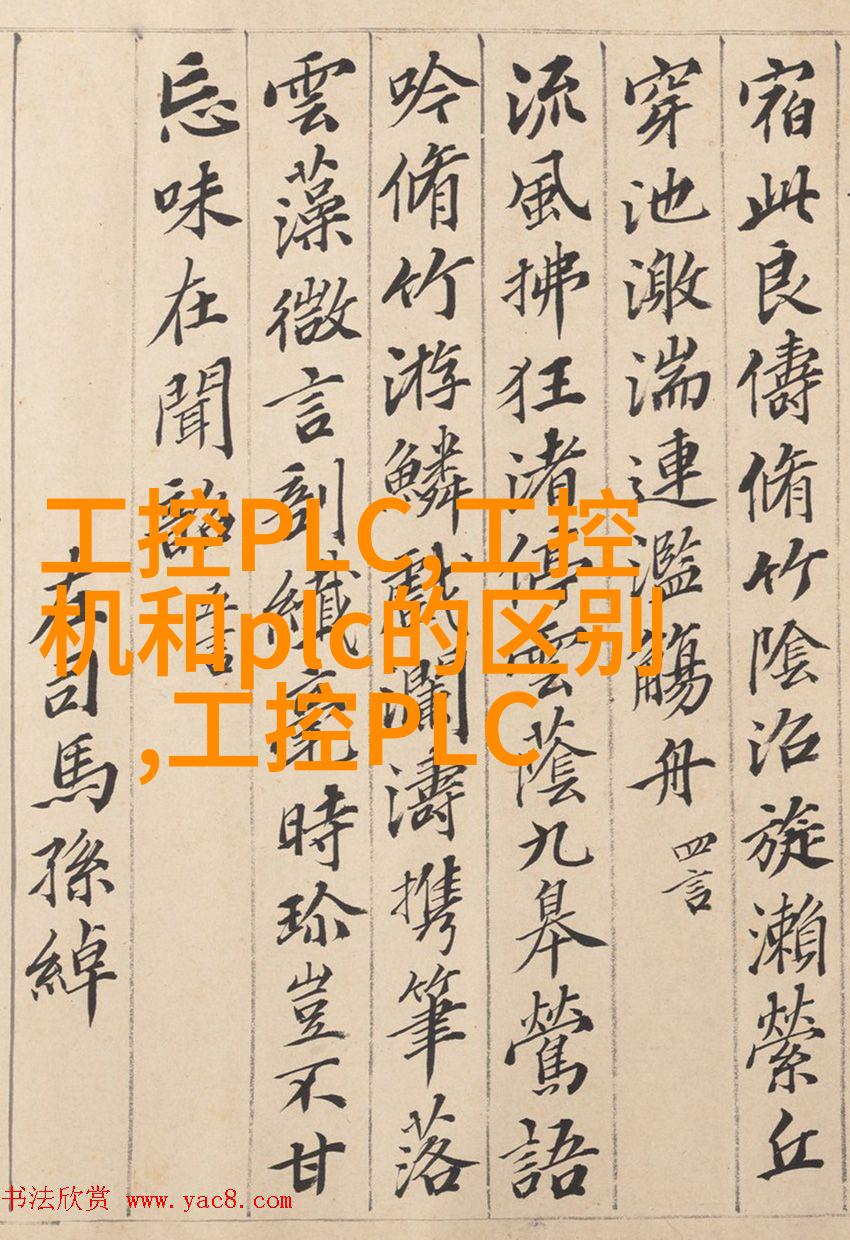 宿此良儔脩竹陰沼旋瀨縈丘
穿池激湍連濫觴舟 四言
流風拂狂渚停雲蔭九皋鶯語
吟脩竹游鱗戲瀾濤携筆落
雲藻微言剖纖毫時珎豈不甘
忘味在聞韶 五言
左司馬孫綽
工控PLC,工控
机和plc的区别
,工控PLC
书法欣赏 www.yac8.com